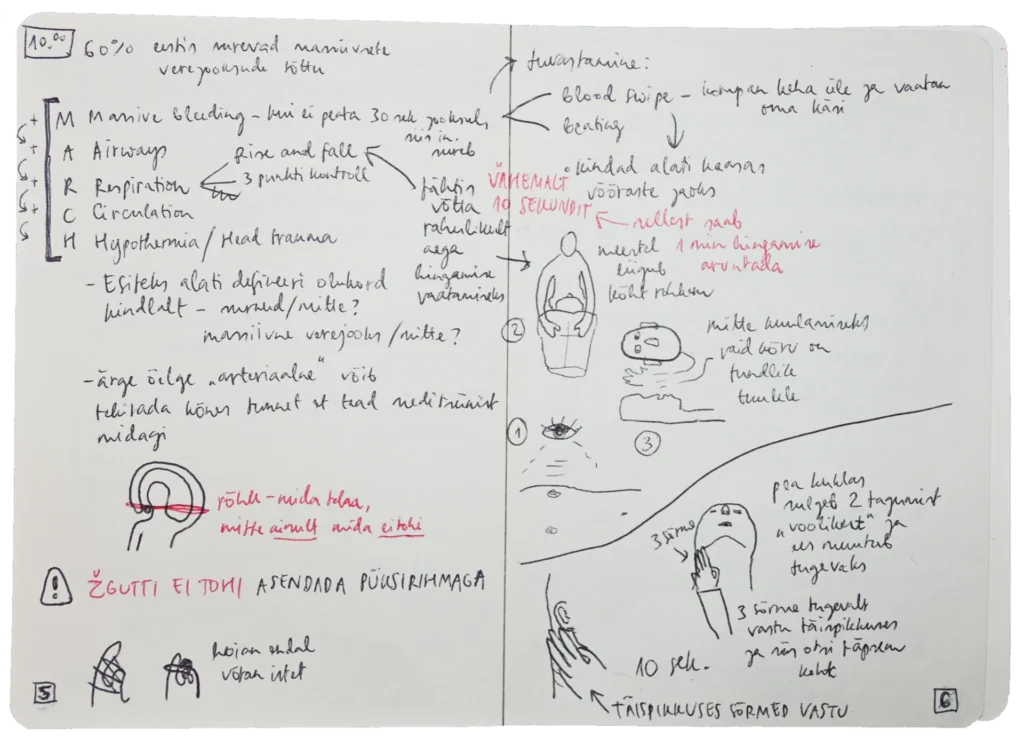 10.00
60% eestis surevad massiivsete
verejooksude tõttu
M Massive bleeding – kui ei peata 30 sek jooksul,
siis in.
sureb
A Airways
R Respiration
Rise and fall
3 punkti kontroll
C Circulation
H Hypothermia / Head trauma
tähtis
võtta
rahulikult
aega
hingamise
vaatamiseks
- Esiteks alati defineeri olukord
kindlalt – surnud/mitte?
massiivne verejooks/mitte?
- ärge öelge „arteriaalne" võib
tekitada kõnes tunnet et tead meditsiinist
midagi
rõhk – mida teha,
mitte ainult mida ei tohi
! ŽGUTTI EI TOHI ASENDADA PÜKSIRIHMAGA
hoian endal
võtan istet
5
tuvastamine:
blood swipe – kompan keha üle ja vaatan
oma käsi
beating
• kindad alati kaasas
võõraste jaoks
VÄHEMALT
10 SEKUNDIT
sellest saab
1 min hingamise
arvutada
meestel
liigub
kõht rohkem
2
mitte kuulamiseks
vaid kõrv on
tundlik
tuulele
1
3
pea kuklas
sulgeb 2 tagumist
„voolikut" ja
ees muutub
tugevaks
3 sõrme
3 sõrme tugevalt
vastu täispikkuses
ja siis otsi täpsem
koht
10 sek.
TÄISPIKKUSES SÕRMED VASTU
6